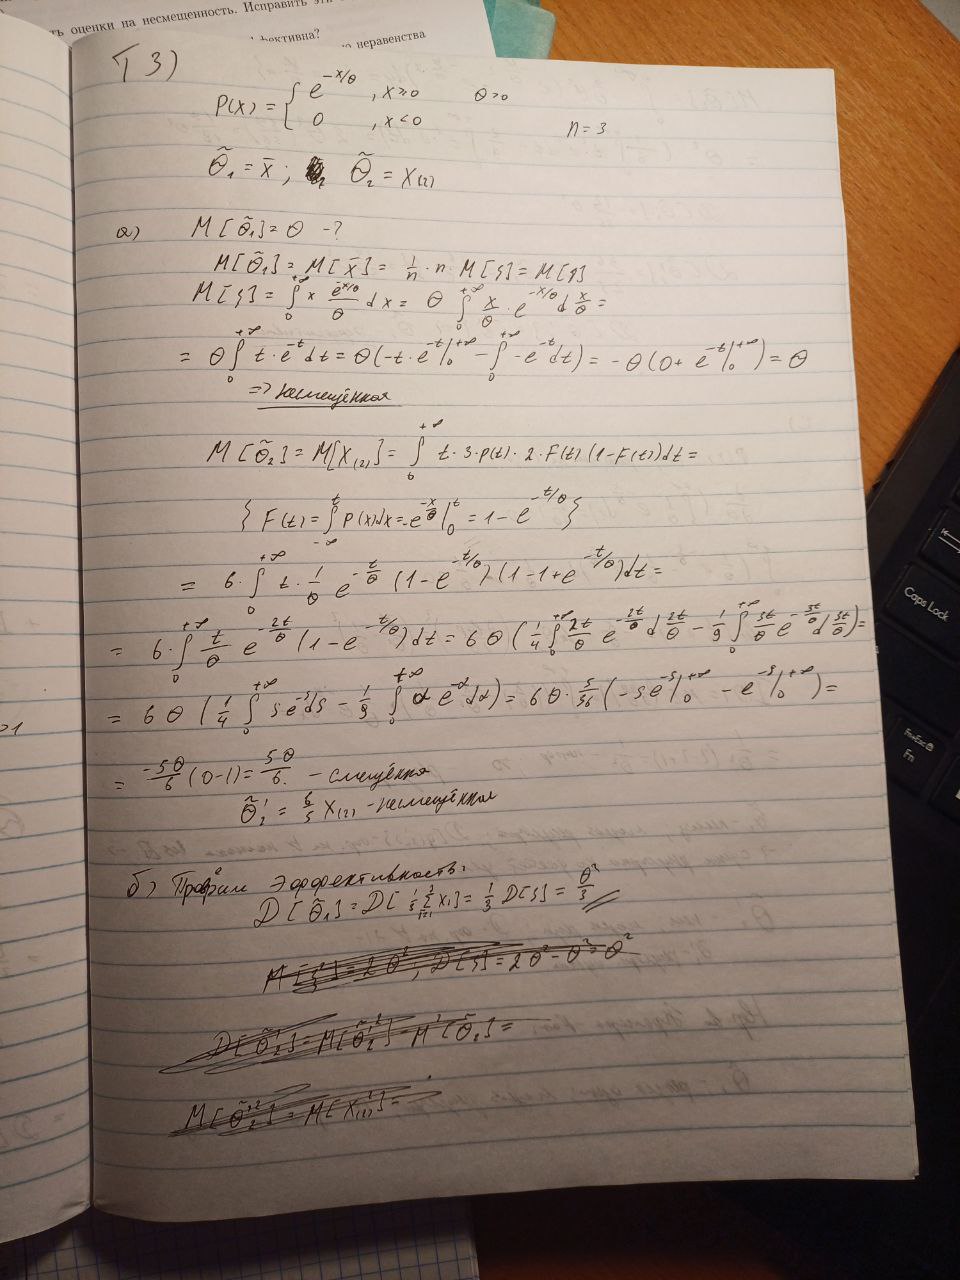 ть оценки на несмещенность. Исправить эти
фективна?
неравенства
T 3)
P(x) = { e^{-x/θ}, x≥0   θ>0
0, x<0
n=3
θ̃₁ = x̄ ; θ̃₂ = X₍₂₎
а) M[θ̃₁] = θ -?
M[θ̃₁] = M[x̄] = 1/n · n · M[ξ] = M[ξ]
M[ξ] = ∫₀^{+∞} x e^{-x/θ}/θ dx = θ ∫₀^{+∞} x/θ · e^{-x/θ} d x/θ =
= θ ∫₀^{+∞} t · e^{-t} dt = θ(-t · e^{-t}|₀^{+∞} - ∫₀^{+∞} -e^{-t} dt) = -θ(0 + e^{-t}|₀^{+∞}) = θ
=> несмещённая
M[θ̃₂] = M[X₍₂₎] = ∫₀^{+∞} t · 3 · p(t) · 2 · F(t) (1-F(t)) dt =
{ F(t) = ∫_{-∞}^{t} P(x)dx = -e^{-x/θ}|₀^t = 1 - e^{-t/θ} }
= 6 · ∫₀^{+∞} t · 1/θ e^{-t/θ} (1-e^{-t/θ}) (1-1+e^{-t/θ}) dt =
= 6 · ∫₀^{+∞} t/θ e^{-2t/θ} (1-e^{-t/θ}) dt = 6θ (1/4 ∫₀^{+∞} 2t/θ e^{-2t/θ} d 2t/θ - 1/9 ∫₀^{+∞} 3t/θ e^{-3t/θ} d 3t/θ) =
= 6θ (1/4 ∫₀^{+∞} s e^{-s} ds - 1/9 ∫₀^{+∞} α e^{-α} dα) = 6θ · 5/36 (-s e^{-s}|₀^{+∞} - e^{-s}|₀^{+∞}) =
= -5θ/6 (0-1) = 5θ/6 - смещённая
θ̃₂' = 6/5 X₍₂₎ - несмещённая
б) Проверим Эффективность:
D[θ̃₁] = D[1/3 Σ_{i=1}^{3} X_i] = 1/3 D[ξ] = θ²/3
M[ξ²] = 2θ², D[ξ] = 2θ² - θ² = θ²
D[θ̃₂'] = M[θ̃₂'²] - M²[θ̃₂] =
M[θ̃₂'²] = M[X₍₂₎²] =
Caps Lock
Fn+Esc
Fn